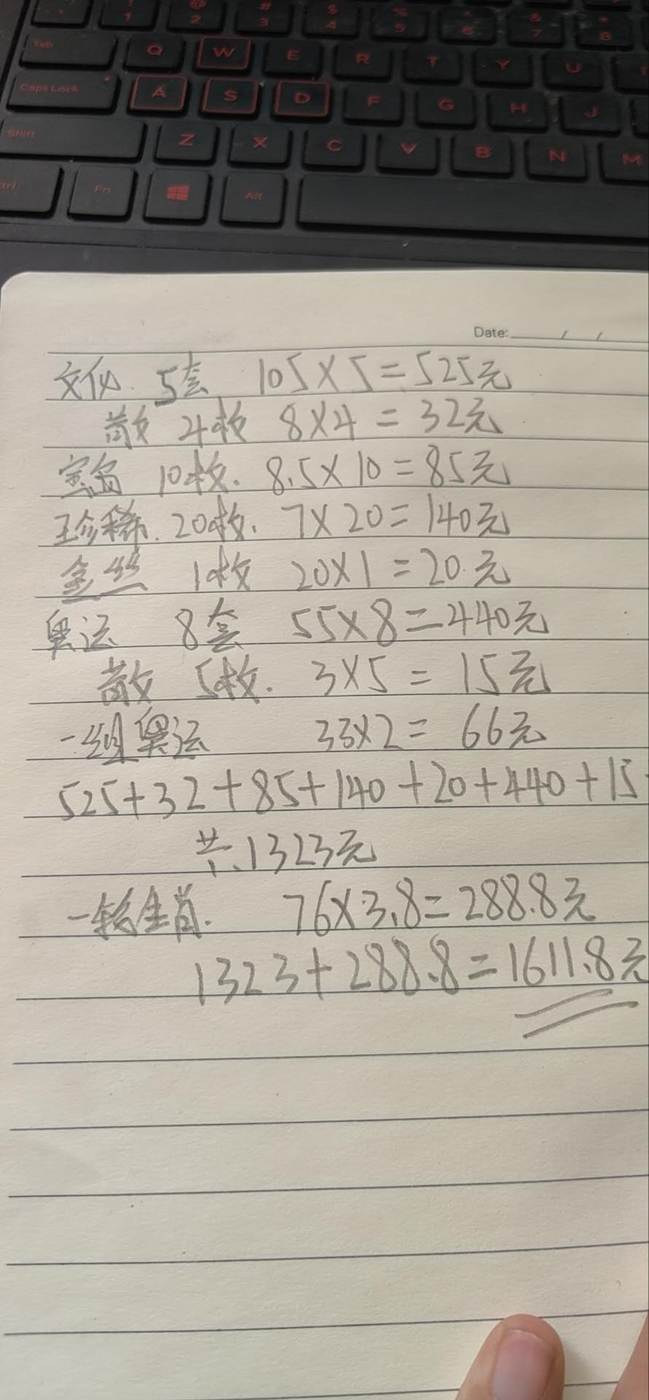 ! 1
@ 2
# 3
$ 4
% 5
^ 6
& 7
* 8
Tab Q W E R T Y U I
Caps Lock A S D F G H J
Shift Z X C V B N M
Ctrl Fn Alt
Date: / /
文化. 5套 105×5=525元
散 4枚 8×4=32元
宝岛 10枚. 8.5×10=85元
珍稀. 20枚. 7×20=140元
金丝 1枚 20×1=20.元
奥运 8套 55×8=440元
散 5枚. 3×5=15元
一组奥运 33×2=66元
525+32+85+140+20+440+15
共.1323元
一轮生肖. 76×3.8=288.8元
1323+288.8=1611.8元